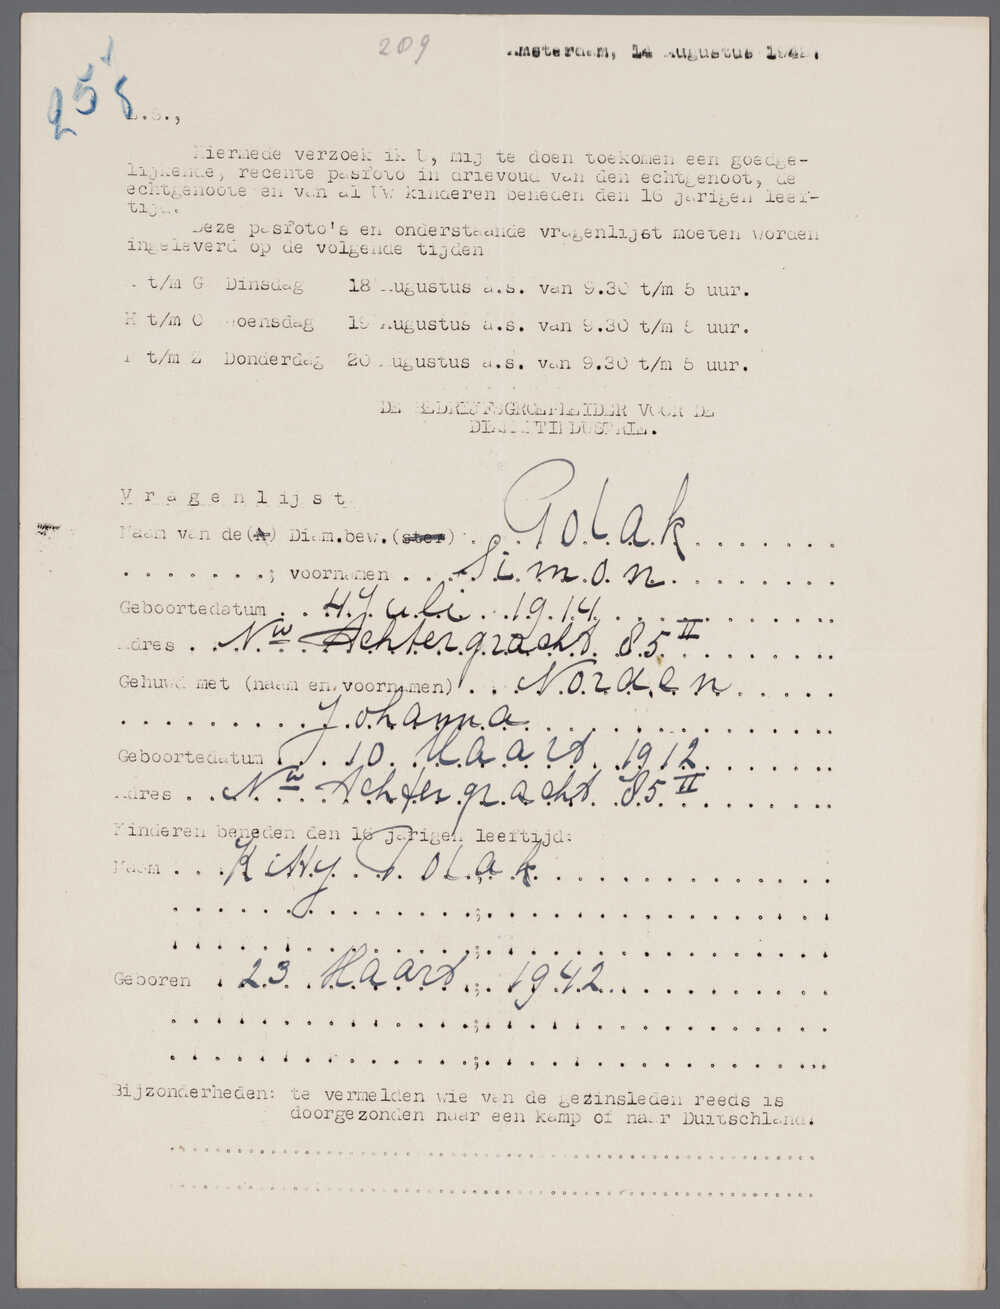 209
258
Amsterdam, 14 Augustus 1942.
L.S.,
Hiermede verzoek ik U, mij te doen toekomen een goedge-
lijkende, recente pasfoto in drievoud van den echtgenoot, de
echtgenoote en van al UW kinderen beneden den 16 jarigen leef-
tijd.
Deze pasfoto's en onderstaande vragenlijst moeten worden
ingeleverd op de volgende tijden
A t/m G Dinsdag 18 Augustus a.s. van 9.30 t/m 5 uur.
H t/m O Woensdag 19 Augustus a.s. van 9.30 t/m 5 uur.
P t/m Z Donderdag 20 Augustus a.s. van 9.30 t/m 5 uur.
DE BEDRIJFSGROEPLEIDER VOOR DE
DIAMANTINDUSTRIE.
Vragenlijst
Naam van de(n) Diam.bew.(ster) . Polak
; voornamen Simon
Geboortedatum 4 Juli 1914
Adres Nw Achtergracht 85 II
Gehuwd met (naam en voornamen) Norden
Johanna
Geboortedatum 10 Maart 1912
Adres Nw Achtergracht 85 II
Kinderen beneden den 16 jarigen leeftijd:
Naam Kitty Polak
;
;
Geboren 23 Maart ; 1942
;
;
Bijzonderheden: te vermelden wie van de gezinsleden reeds is
doorgezonden naar een kamp of naar Duitschland.